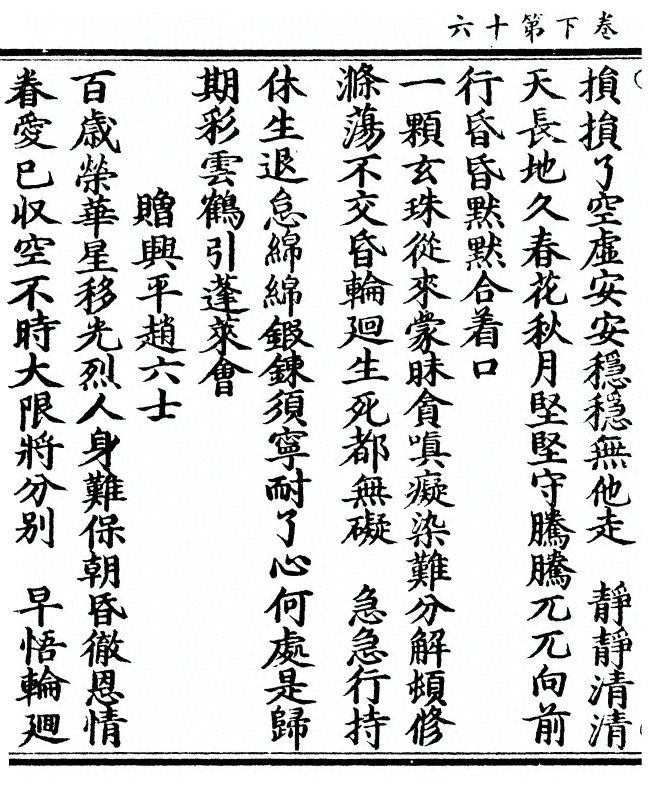 卷下第十六
損損了空虛安安穩穩無他走　靜靜清清
天長地久春花秋月堅堅守騰騰兀兀向前
行昏昏默默合着口
一顆玄珠從來蒙昧貪嗔癡染難分解頓修
滌蕩不交昏輪廻生死都無礙　急急行持
休生退怠綿綿鍛鍊須寧耐了心何處是歸
期彩雲鶴引蓬萊會
贈興平趙六士
百歲榮華星移光烈人身難保朝昏徹恩情
眷愛已収空不時大限將分别　早悟輪廽